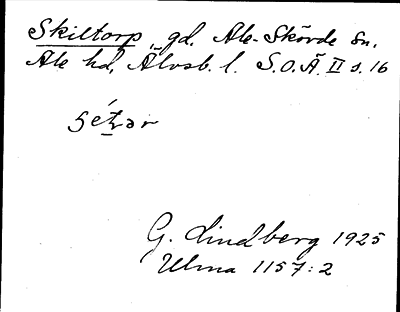 Skiltorp, gd. Ale-Skövde sn.
Ale hd, Älvsb. l. S.O.Ä II s. 16
G. Lindberg 1925
Ulma 1157:2